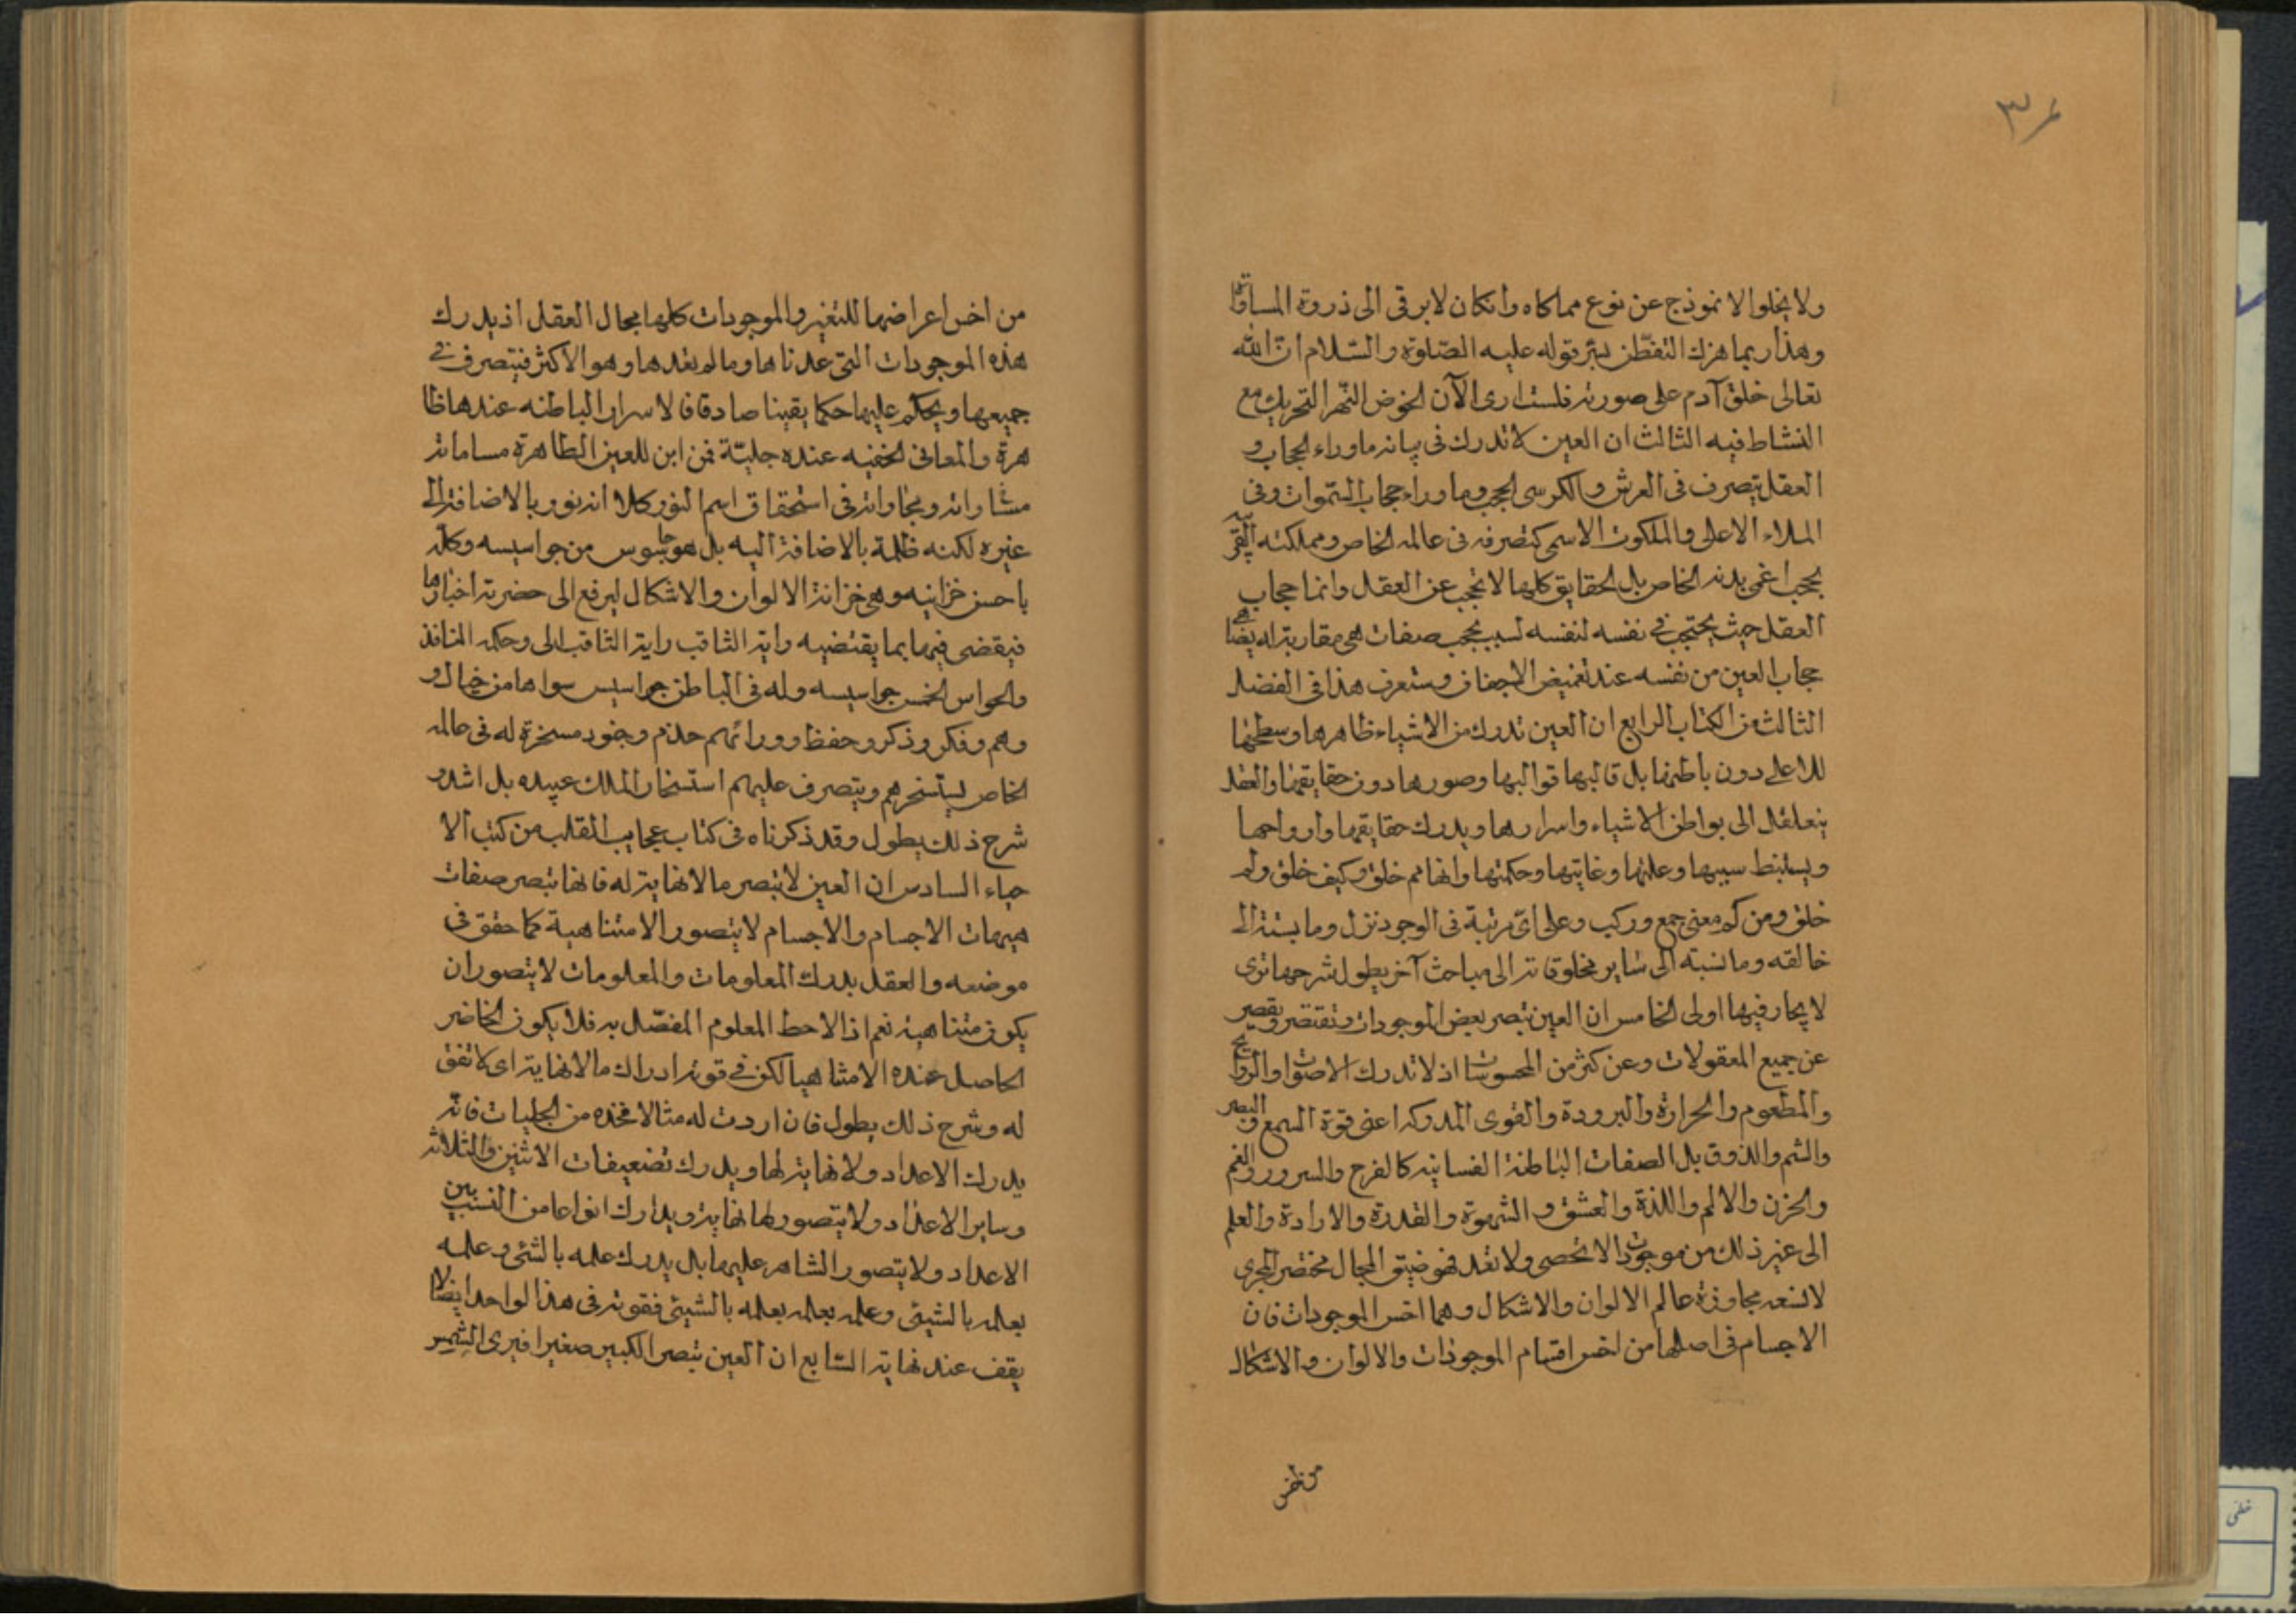 ۳۶
ولا يخلوا الانموذج عن نوع مماكاه وانكان لا يرقى الى ذروة المساواة
وهذا ربما هزك التفطن لسر قوله عليه الصلوة والسلام ان الله
تعالى خلق آدم على صورته فلست ارى الآن الخوض النهر التحريك مع
النشاط فيه الثالث ان العين لا تدرك فى پيانه ماوراء الحجاب و
العقل يتصرف فى العرش والكرسى الحجب وما وراء حجاب السموات وفى
الملاء الاعلى والملكوت الاسمى كتصرفه فى عالمه الخاص ومملكته القريبه
بحجب اغى بدنه الخاص بل الحقايق كلها لا تحجب عن العقل وانما حجاب
العقل حيث يحتجب فى نفسه لنفسه لسبب بحجب صفات هى مقاربة له يضاهى
حجاب العين من نفسه عند تغميض الاجفان وستعرف هذا فى الفضل
الثالث من الكتاب الرابع ان العين تدرك من الاشياء ظاهرها وسطحها
للاعلى دون باطنها بل قالبها قوالبها وصورها دون حقايقها والعقل
يتغلغل الى بواطن الاشياء واسرارها ويدرك حقايقها وارواحها
ويستنبط سببها وعلتها وغايتها وحكمتها وانها مم خلق وكيف خلق ولم
خلق ومن كم معنى جمع وركب وعلى اى مرتبة فى الوجود نزل وما بسته الى
خالقه وما نسبته الى ساير مخلوقاته الى مباحث آخر يطول شرحها ترى
لا يحار فيها اولى الخامس ان العين تبصر بعض الموجودات وتقتصر ويقصر
عن جميع المعقولات وعن كثر من المحسوسات اذ لا تدرك الاصوات والروايح
والمطعوم والحرارة والبرودة والقوى المدركه اعنى قوة السمع والبصر
والشم والذوق بل الصفات الباطنة الفسانيه كالفرح والسرور والغم
والحزن والالم واللذة والعشق و الشهوة والقدرة والارادة والعلم
الى غير ذلك من موجودات لا تحصى ولا تعد فهو ضيق المجال مختصر المجرى
لا تسعه مجاوزة عالم الالوان والاشكال وهما اخس الموجودات فان
الاجسام فى اصلها من اخس اقسام الموجودات والالوان والاشكال
من اخس
من اخس اعراضها للتغير والموجودات كلها مجال العقل اذ يدرك
هذه الموجودات التى عدناها وما لم نعدها وهو الاكثر فيتصرف فى
جميعها ويحكم عليها حكما يقينا صادقا فالاسرار الباطنه عندها ظا
هرة والمعانى الخفيه عنده جلية فمن اين للعين الظاهرة مساماته
مساواته ومجاواته فى استحقاق اسم النور كلا انه نور بالاضافة الى
غيره لكنه ظلمة بالاضافة اليه بل هو جاسوس من جواسيسه وكله
باحسن خزاينه وهى خزانة الالوان والاشكال ليرفع الى حضرته اخبارها
فيقضى فيها بما يقتضيه رايه الثاقب رايه الثاقب ابلى وحكمه النافذ
والحواس الخمس جواسيسه وله فى الباطن جواسيس سواها من خيال و
وهم وفكر وذكر وحفظ ووراءهم خدم وجنود مسخرة له فى عالمه
الخاص ليستسخرهم ويتصرف عليهم استسخار الملك عبيده بل اشد و
شرح ذلك يطول وقد ذكرناه فى كتاب عجايب القلب من كتب الا
حياء السادس ان العين لا يتبصر ما لا نهاية له فانها تبصر صفات
هيهات الاجسام والاجسام لا يتصور الا متناهية كما حقق فى
موضعه والعقل يدرك المعلومات والمعلومات لا يتصور ان
يكون متناهية نعم اذ الاحط المعلوم المفصل به فلا يكون الحاضر
الحاصل عنده الا متناهيا لكن فى قوته ادراك ما لا نهاية اى لا تفق
له وشرح ذلك يطول فان اردت له مثالا فخذه من الجليات فانه
يدرك الاعداد ولا نهاية لها ويدرك تضعيفات الاثنين والثلاثه
وساير الاعداد ولا يتصور لها نهاية ويدارك انواعا من النسب بين
الاعداد ولا يتصور الشاهر عليها بل يدرك علمه بالشئ وعلمه
بعلمه بالشيئ وعلمه بعلمه بعلمه بالشيئ فقوته فى هذا الواحد ايضا لا
يقف عند نهاية السابع ان العين تبصر الكبير صغيرا فيرى الشمس
خطى